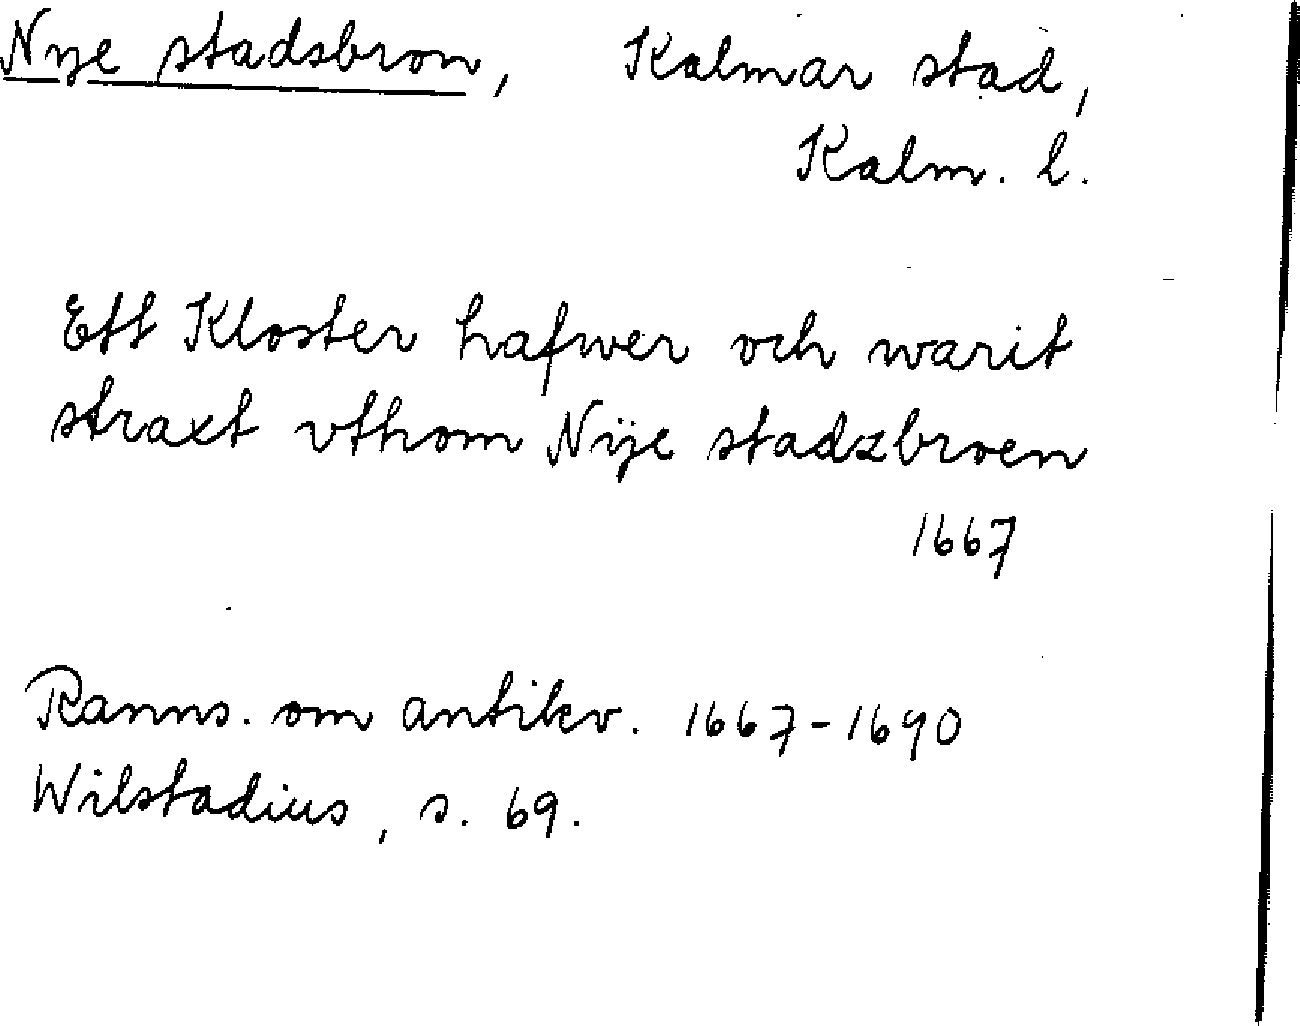 Nye stadsbron, Kalmar stad,
Kalm. l.
Ett Kloster hafwer och warit
straxt vthom Nÿe stadzbroen
1667
Ranns. om antikv. 1667-1690
Wilstadius, s. 69.